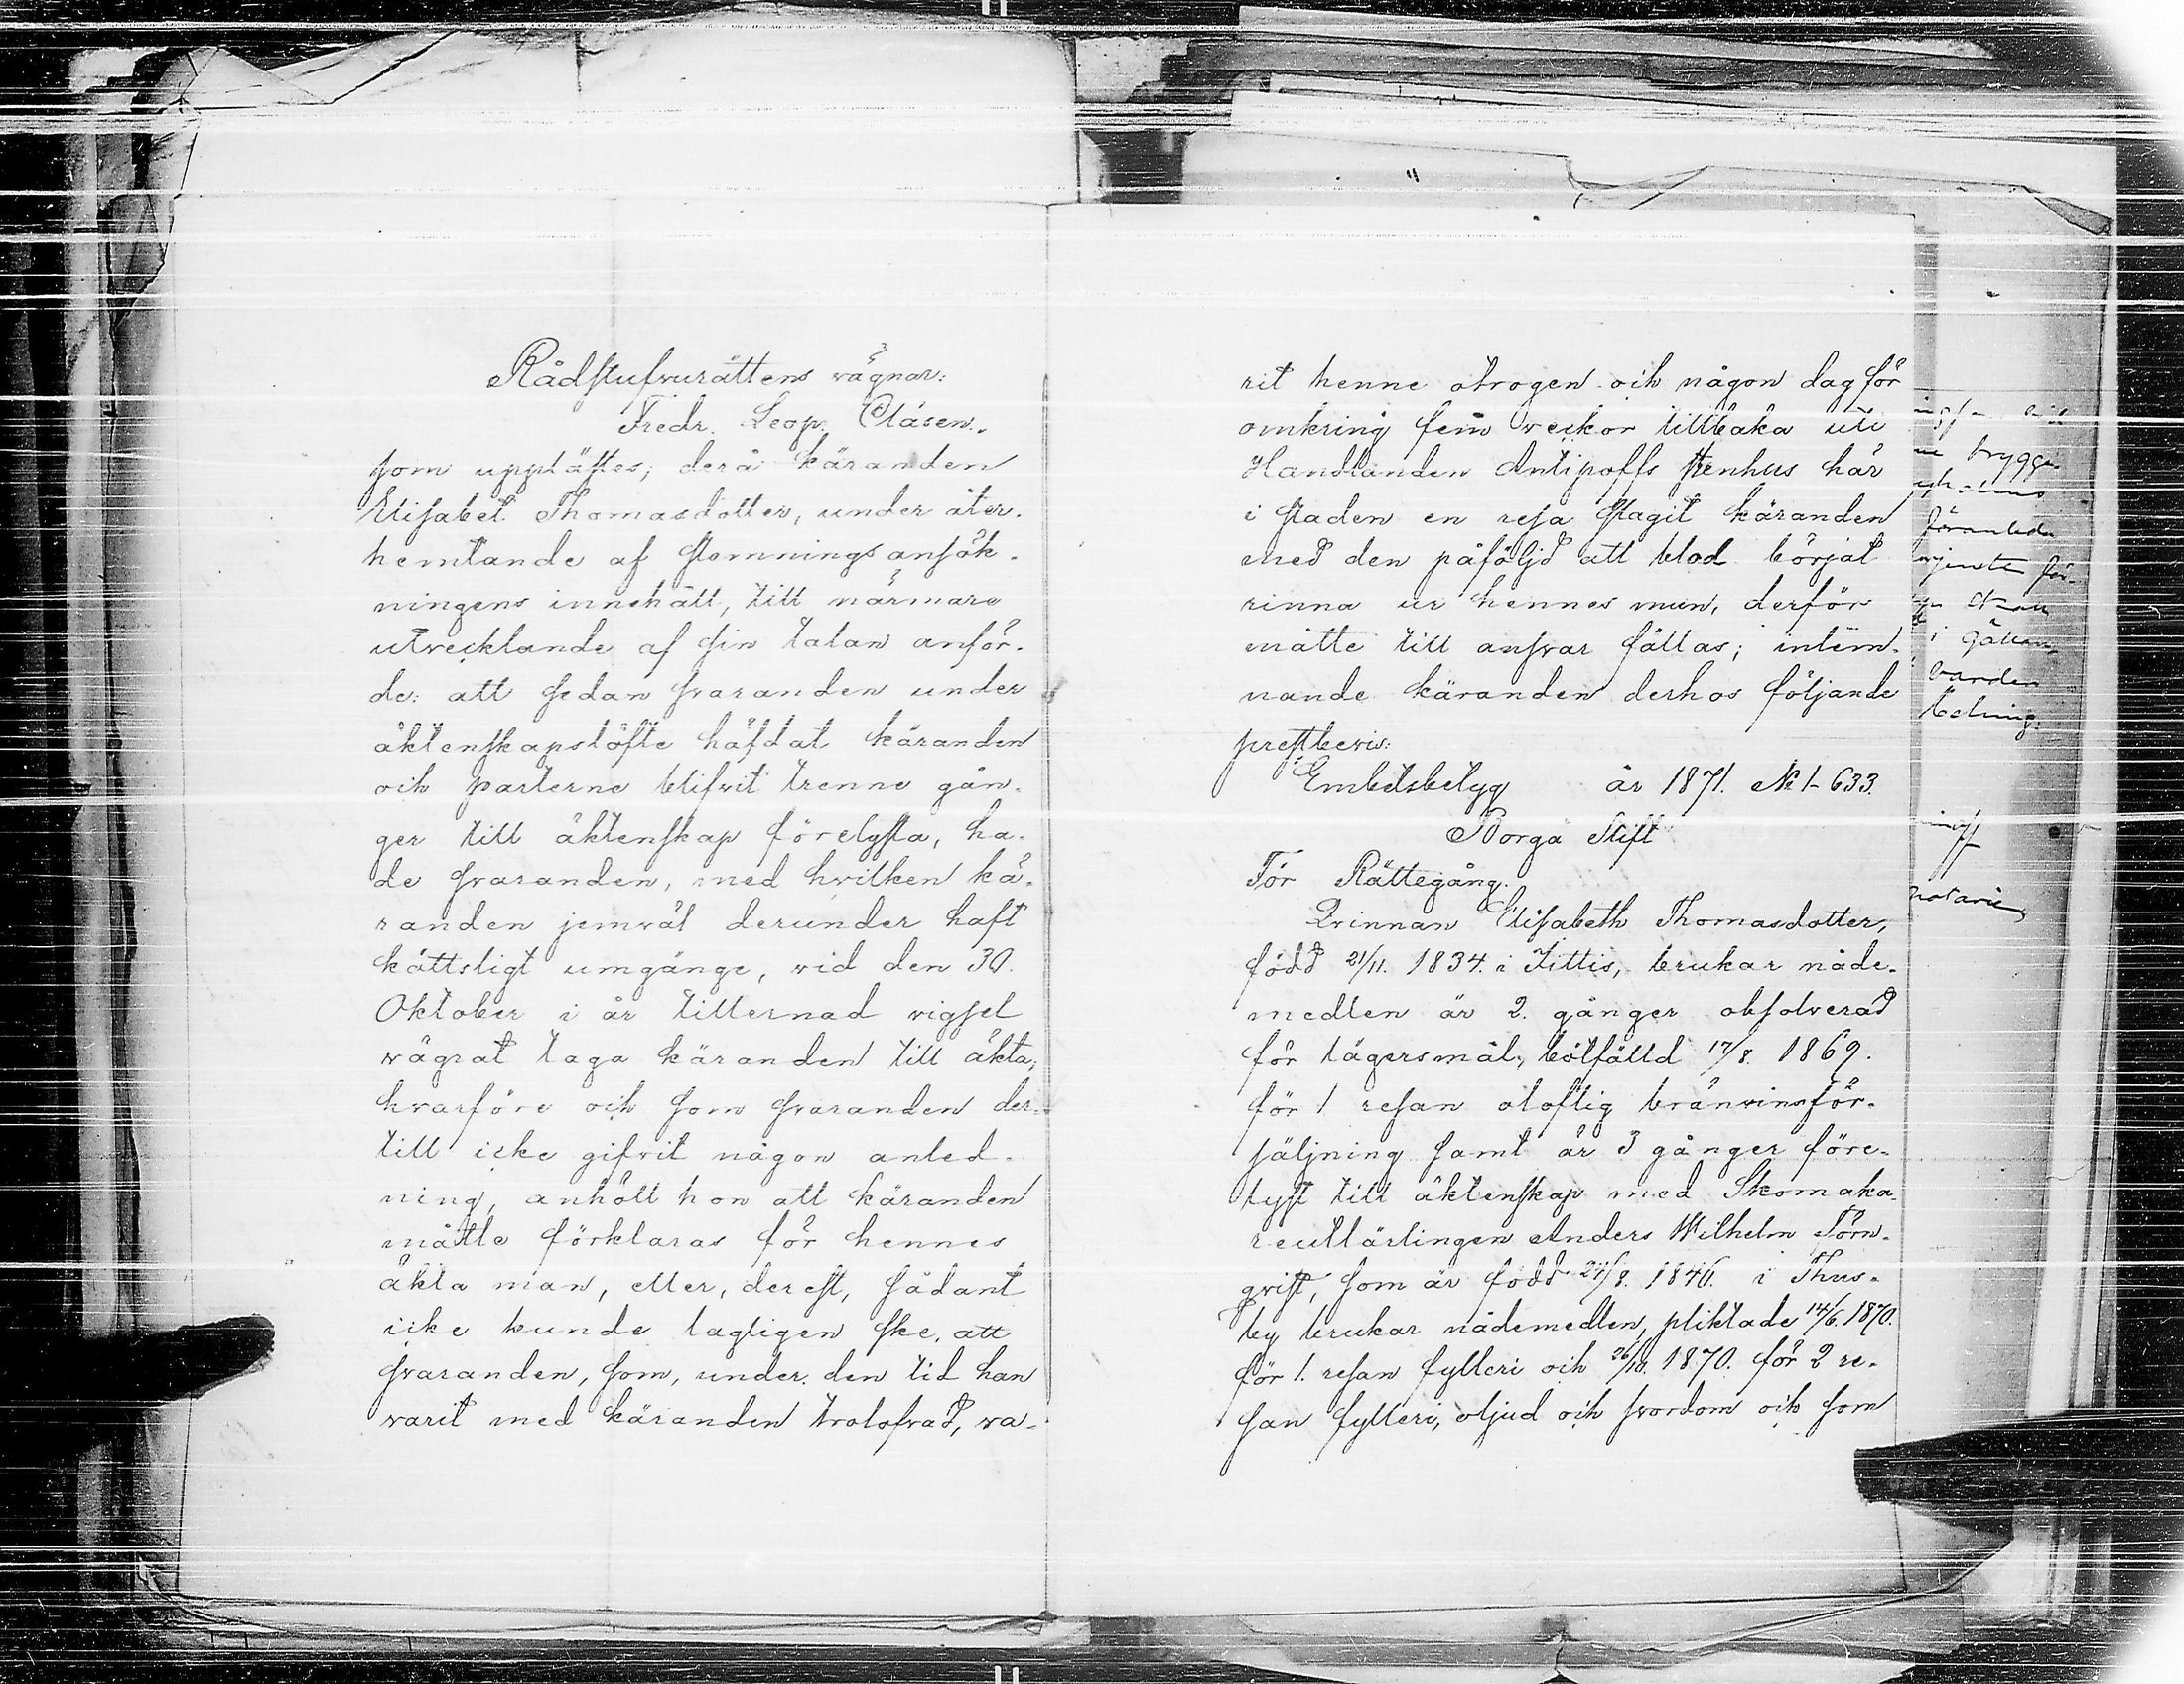 Rådstufvurättens vägnar:
Fredr. Leop. Clásen.
som upplästes; derå käranden
Elisabet Thomasdotter, under åter-
hemtande af stemningsansök-
ningens innehåll, till närmare
utvecklande af sin talan anför-
de: att sedan svaranden under
äktenskapslöfte häfdat käranden
och parterne blifvit trenne gån-
ger till äktenskap förelysta, ha-
de svaranden, med hvilken kä-
randen jemväl derunder haft
köttsligt umgänge, vid den 30.
Oktober i år tillernad vigsel
vägrat taga käranden till äkta;
hvarföre och som svaranden der-
till icke gifvit någon anled-
ning, anhöll hon att käranden
måtte förklaras för hennes
äkta man, eller, derest, sådant
icke kunde lagligen ske, att
svaranden, som, under den tid han
varit med käranden trolofvad, va-
rit henne otrogen och någon dag för
omkring fem veckor tillbaka uti
Handlanden Antipoffs stenhus här
i staden en resa slagit käranden
med den påföljd att blod börjat
rinna ur hennes mun, derför
måtte till ansvar fällas; intem-
nande käranden derhos följande
prestbevis:
Embetsbetyg år 1871. No 1-633.
Borgå Stift
För Rättegång.
Qvinnan Elisabeth Thomasdotter,
född 21/11. 1834. i Jittis, brukar nåde-
medlen är 2. gånger absolverad
för lägersmål, bötfälld 17/8. 1869.
för 1 resan oloflig bränvinsför-
säljning samt är 3 gånger före-
lyst till äktenskap med Skomaka-
reutlärlingen Anders Wilhelm Törn-
qvist, som är född 24/8. 1846. i Thus-
by brukar nådemedlen, pliktade 14/6. 1870.
för 1. resan fylleri och 26/10. 1870. för 2 re-
san fylleri, oljud och svordom och som
brygge
föranleda
i
notarie